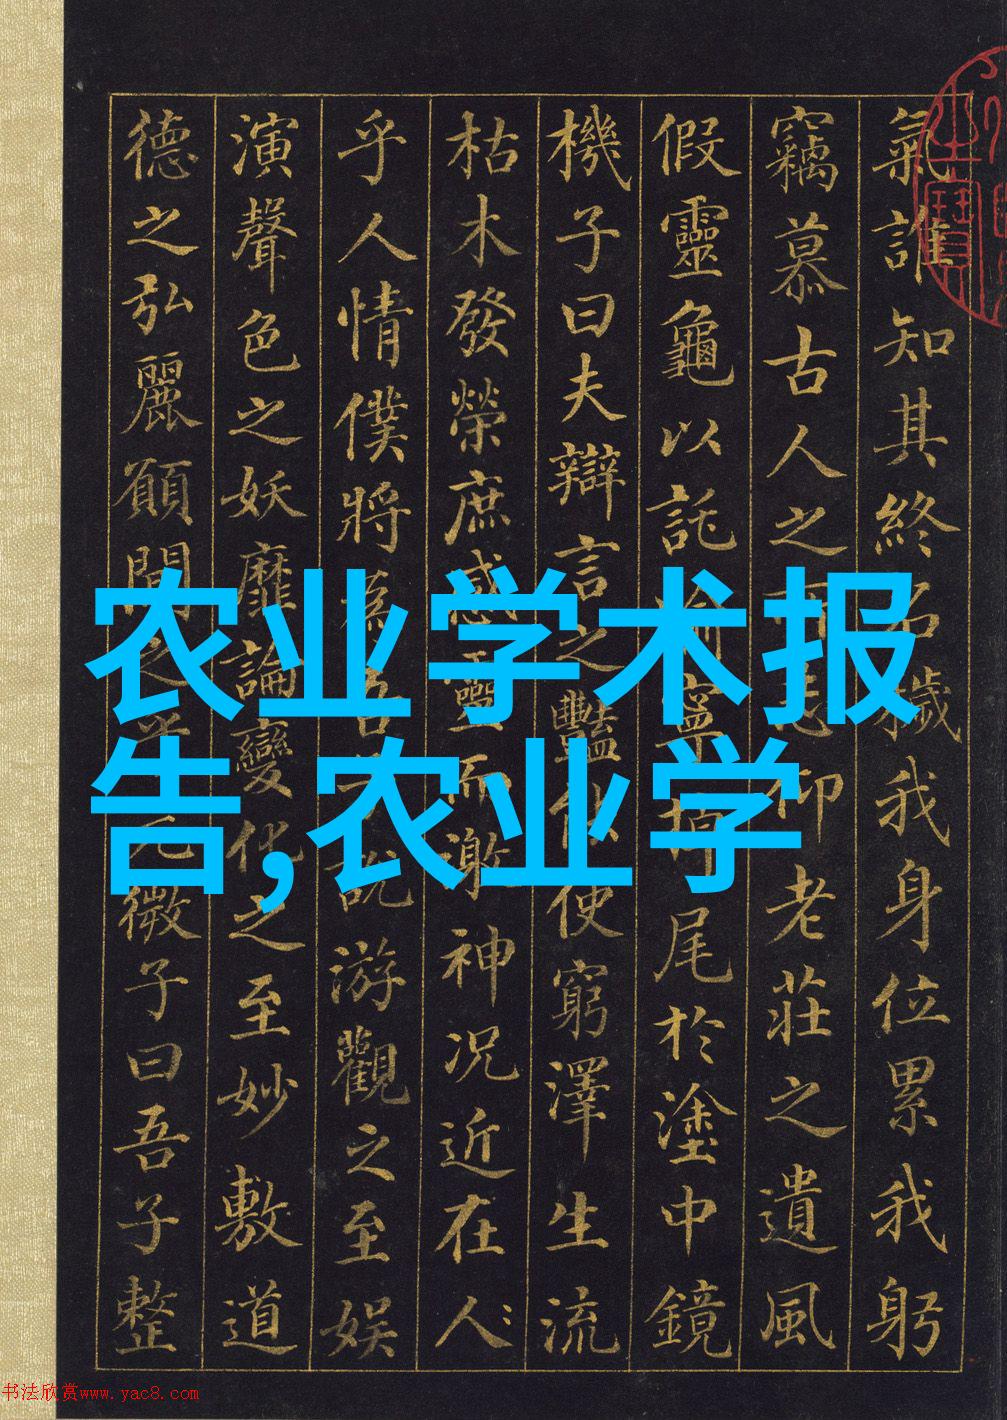 氣誰知其終名穢我身位累我躬
竊慕古人之所志仰老莊之遺風
假靈龜以託喻寧掉尾於塗中鏡
機子曰夫辯言之豔能使窮澤生流
枯木發榮庶感靈而激神況近在人
乎人情僕將為吾子說游觀之至娛
演聲色之妖靡論變化之至妙敷道
德之弘麗願聞之乎玄微子曰吾子整
农业学术报
告,农业学
书法欣赏www.yac8.com